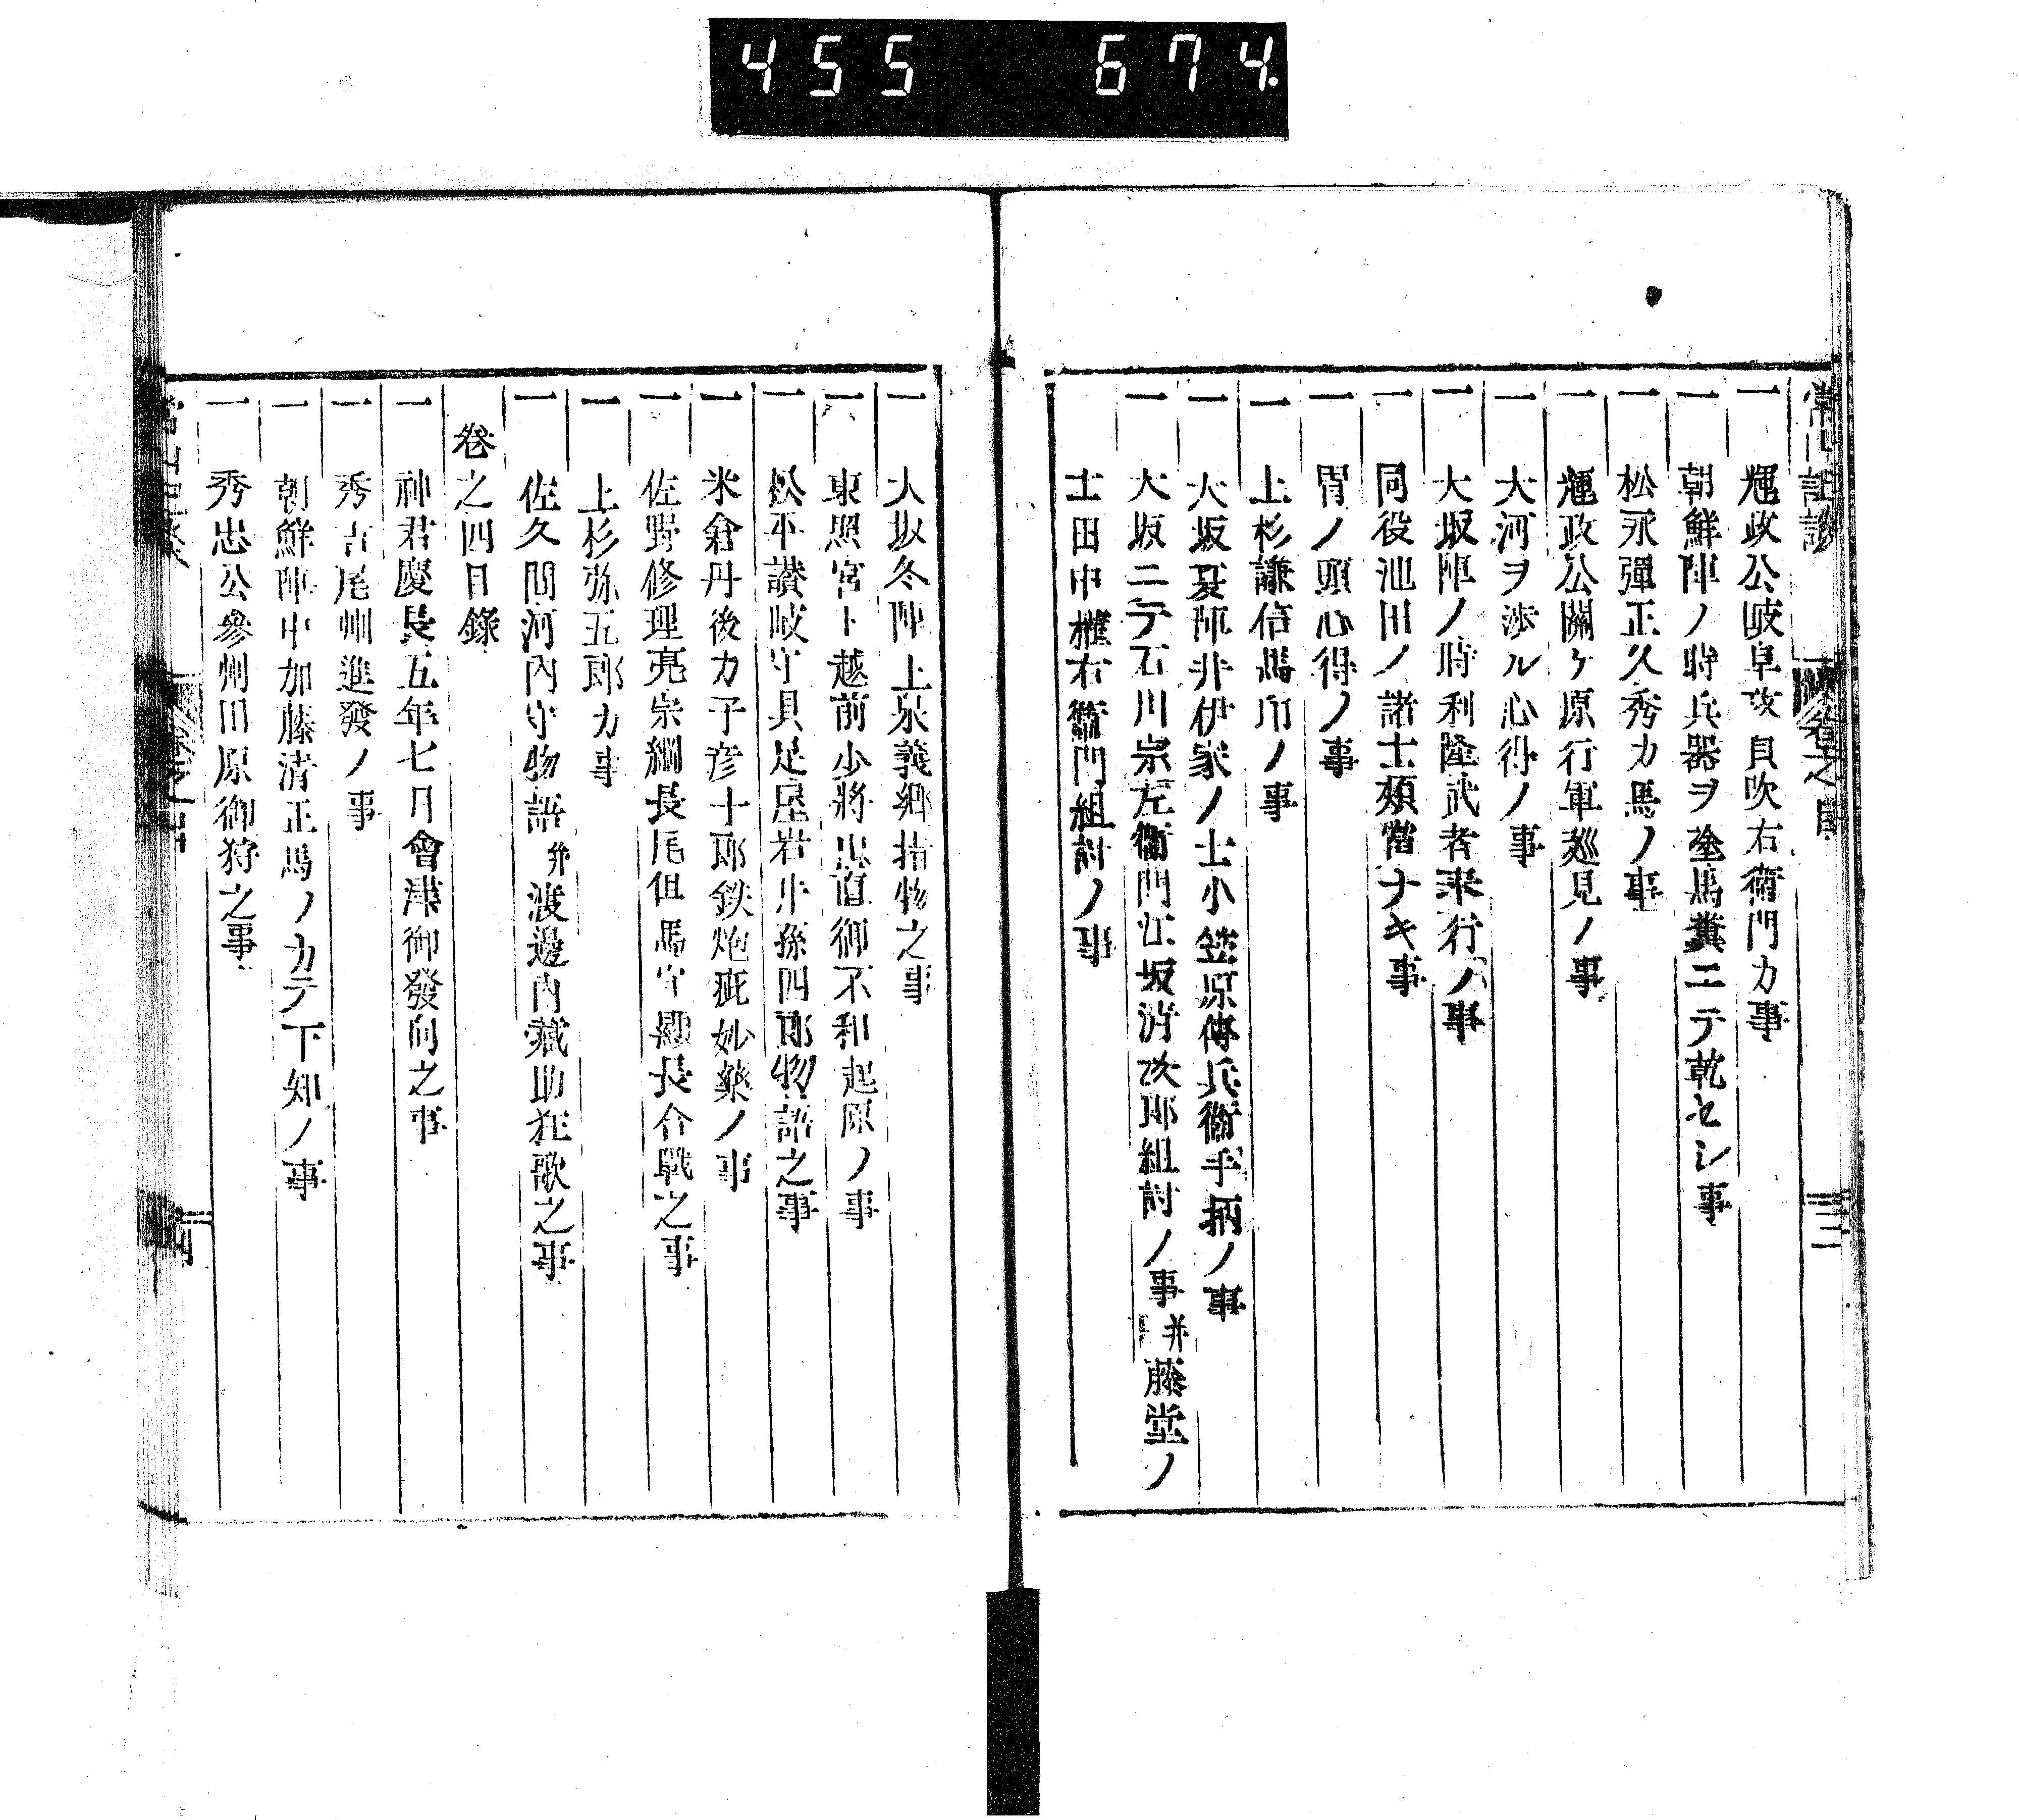 455 674
一 輝政公岐阜攻貝吹右衛門カ事
一 朝鮮陣ノ時兵器ヲ塗馬糞ニテ乾セシ事
一 松永彈正久秀カ馬ノ事
一 輝政公關ケ原行軍廵見ノ事
一 大河ヲ渉ル心得ノ事
一 大坂陣ノ時利隆武者押行ノ事
一 同役池田ノ諸士頰當ナキ事
一 胃ノ頭心得ノ事
一 上杉謙信馬印ノ事
一 大坂夏陣井伊家ノ士小笠原傳兵衞手柄ノ事
一 大坂ニテ石川宗左衞門江坂清次郎組討ノ事并藤堂ノ
士田中權右衞門組討ノ事
一 大坂冬陣上泉義郷指物之事
一 東照宮ト越前少將忠直御不和起原ノ事
一 松平讃岐守具足屋岩井孫四郎物語之事
一 米倉丹後カ子彦十郎鉄炮疵妙藥ノ事
一 佐野修理亮宗綱長尾但馬守顯長合戰之事
一 上杉弥五郎カ事
一 佐久間河内守物語并渡邊内藏助狂歌之事
卷之四目錄
一 神君慶長五年七月會津御發向之事
一 秀吉尾州進發ノ事
一 朝鮮陣中加藤清正馬ノカテ下知ノ事
一 秀忠公參州田原御狩之事